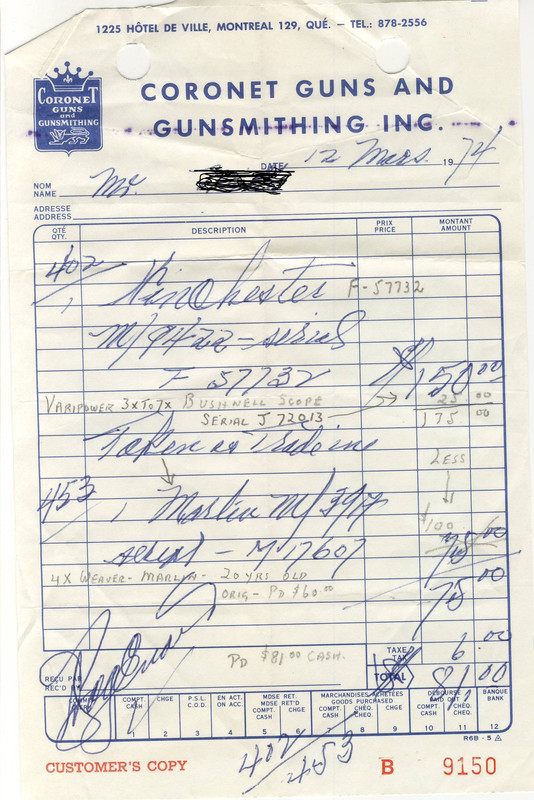 1225 HÔTEL DE VILLE, MONTREAL 129, QUÉ. – TEL.: 878-2556
CORONET GUNS and GUNSMITHING
CORONET GUNS AND
GUNSMITHING INC.
DATE 12 Mars. 1974
NOM NAME Mr.
ADRESSE ADDRESS
QTÉ QTY. DESCRIPTION PRIX PRICE MONTANT AMOUNT
402
1 Winchester F-57732
M/9422 - serial
F 57732 $150.00
VARIPOWER 3X TO 7X BUSHNELL SCOPE 25.00
SERIAL J 72013 175.00
Taken as Trade in LESS
453 1 Marlin M/39A $100
serial - M 17607 75.00
4X WEAVER - MARLIN - 20 YRS OLD 75.00
ORIG - PD $60.00
TAXE TAX 6.00
PD $81.00 CASH.
REÇU PAR REC'D BY TOTAL 81.00
COMPT. CASH CHGE P.S.L. C.O.D. EN ACT. ON ACC. MDSE RET. MDSE RET'D COMPT. CASH CHGE MARCHANDISES ACHETÉES GOODS PURCHASED COMPT. CASH CHÉQ. CHEQ. DÉBOURSÉ PAID OUT COMPT. CASH CHÉQ. CHEQ. BANQUE BANK
1 2 3 4 5 6 7 8 9 10 11 12
R6B - 5
402
453
CUSTOMER'S COPY B 9150